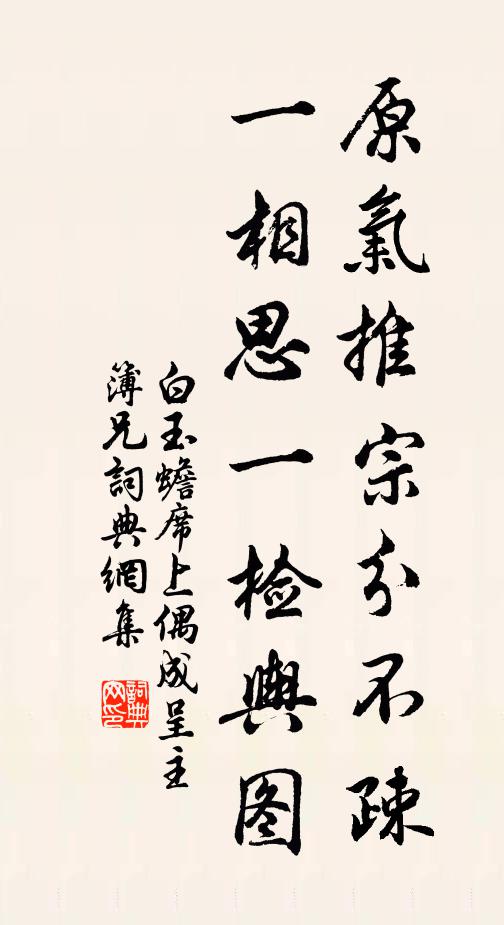 原氣推宗分不踈
一相思一檢輿图
白玉蟾席上偶成呈主
簿兄詞典網集
詞典
网印